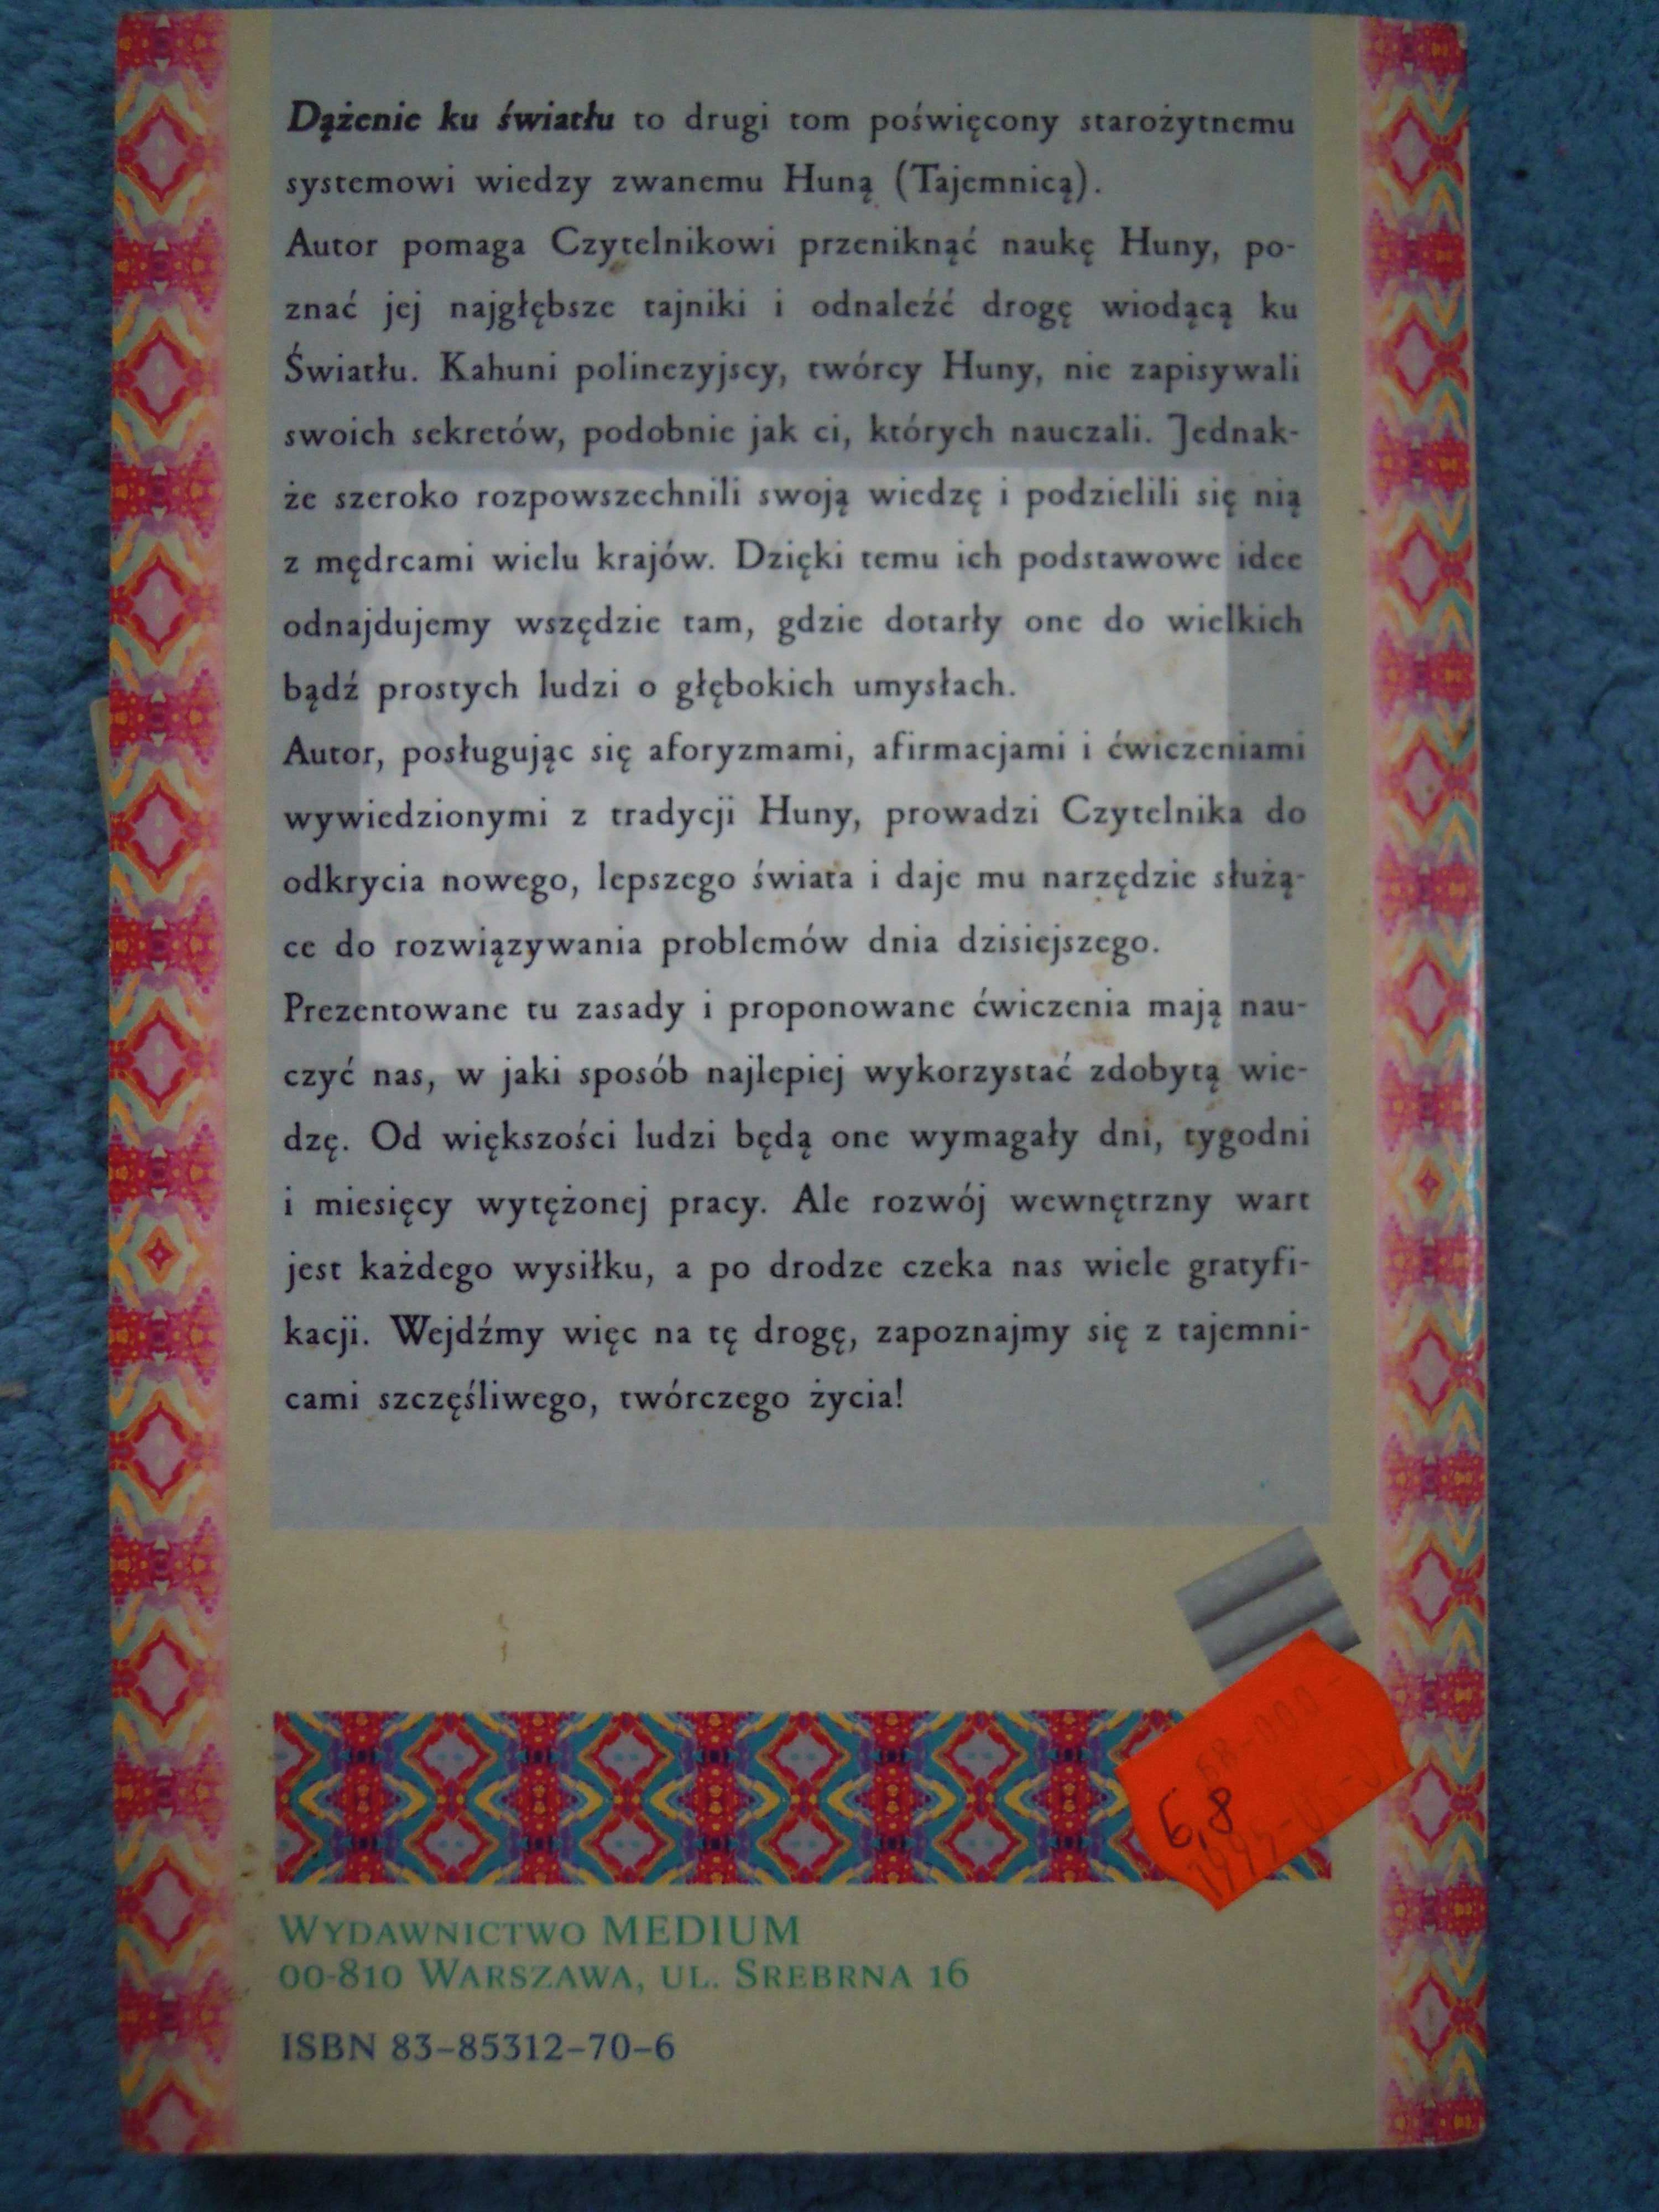 Dążenie ku światłu to drugi tom poświęcony starożytnemu
systemowi wiedzy zwanemu Huną (Tajemnicą).
Autor pomaga Czytelnikowi przeniknąć naukę Huny, po-
znać jej najgłębsze tajniki i odnaleźć drogę wiodącą ku
Światłu. Kahuni polinezyjscy, twórcy Huny, nie zapisywali
swoich sekretów, podobnie jak ci, których nauczali. Jednak-
że szeroko rozpowszechnili swoją wiedzę i podzielili się nią
z mędrcami wielu krajów. Dzięki temu ich podstawowe idee
odnajdujemy wszędzie tam, gdzie dotarły one do wielkich
bądź prostych ludzi o głębokich umysłach.
Autor, posługując się aforyzmami, afirmacjami i ćwiczeniami
wywiedzionymi z tradycji Huny, prowadzi Czytelnika do
odkrycia nowego, lepszego świata i daje mu narzędzie służą-
ce do rozwiązywania problemów dnia dzisiejszego.
Prezentowane tu zasady i proponowane ćwiczenia mają nau-
czyć nas, w jaki sposób najlepiej wykorzystać zdobytą wie-
dzę. Od większości ludzi będą one wymagały dni, tygodni
i miesięcy wytężonej pracy. Ale rozwój wewnętrzny wart
jest każdego wysiłku, a po drodze czeka nas wiele gratyfi-
kacji. Wejdźmy więc na tę drogę, zapoznajmy się z tajemni-
cami szczęśliwego, twórczego życia!
68-000-
6,8
Wydawnictwo MEDIUM
00-810 Warszawa, ul. Srebrna 16
ISBN 83-85312-70-6